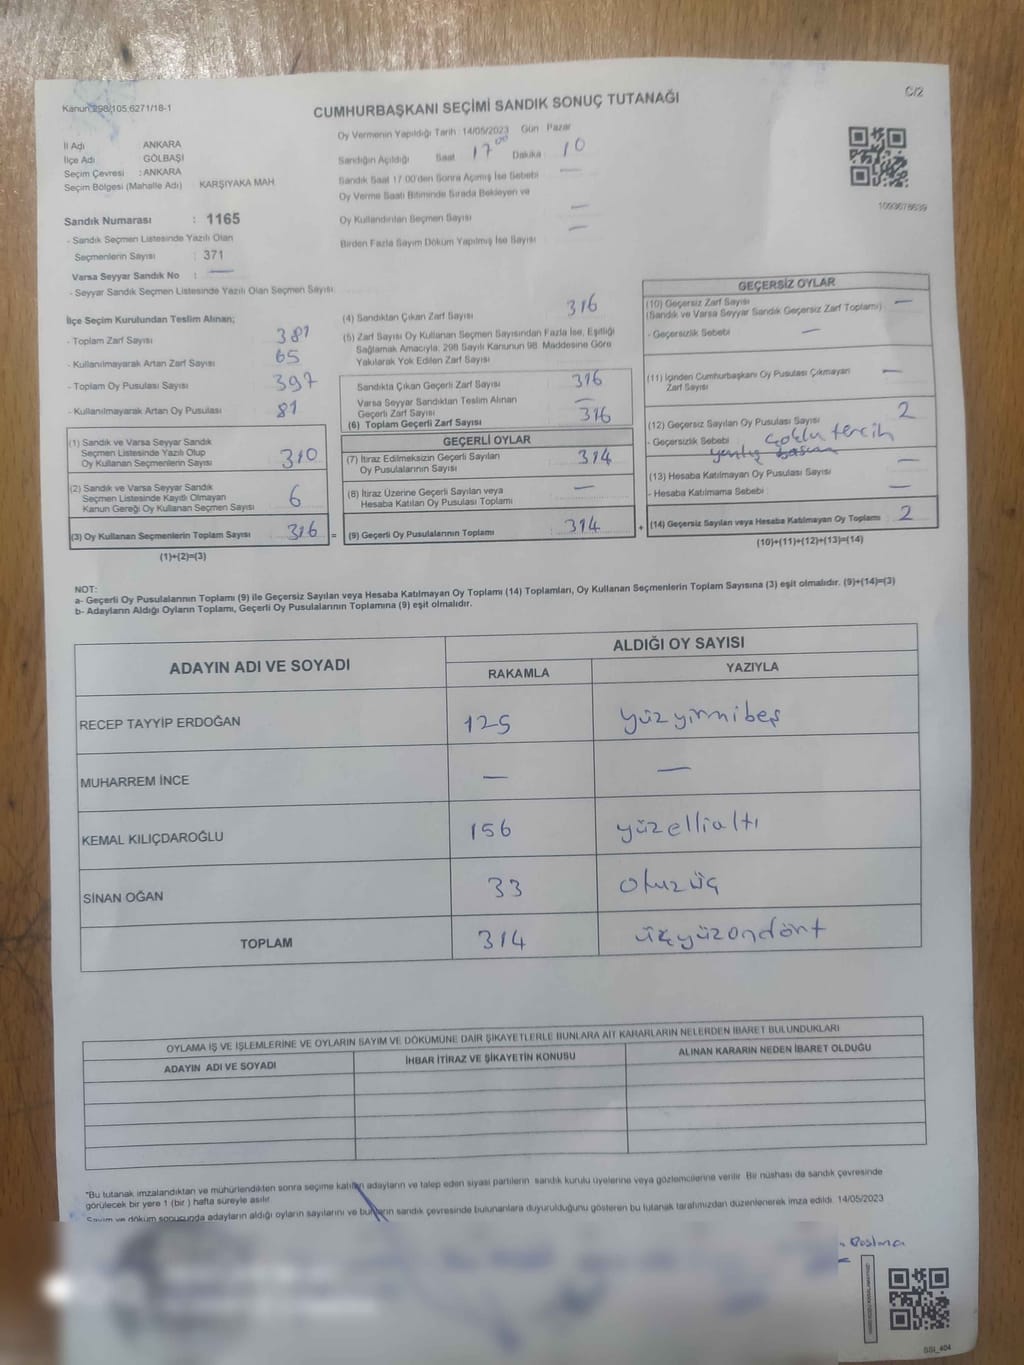 Kanun:298/105,6271/18-1
C/2
CUMHURBAŞKANI SEÇİMİ SANDIK SONUÇ TUTANAĞI
İl Adı ANKARA
İlçe Adı GÖLBAŞI
Seçim Çevresi : ANKARA
Seçim Bölgesi (Mahalle Adı) KARŞIYAKA MAH
Sandık Numarası : 1165
- Sandık Seçmen Listesinde Yazılı Olan
Seçmenlerin Sayısı : 371
Varsa Seyyar Sandık No : —
- Seyyar Sandık Seçmen Listesinde Yazılı Olan Seçmen Sayısı:
Oy Vermenin Yapıldığı Tarih : 14/05/2023 Gün Pazar
Sandığın Açıldığı Saat 17 00 Dakika 10
Sandık Saat 17:00'den Sonra Açılmış İse Sebebi —
Oy Verme Saati Bitiminde Sırada Bekleyen ve
Oy Kullandırılan Seçmen Sayısı —
Birden Fazla Sayım Döküm Yapılmış İse Sayısı —
1093678639
İlçe Seçim Kurulundan Teslim Alınan;
- Toplam Zarf Sayısı 381
- Kullanılmayarak Artan Zarf Sayısı 65
- Toplam Oy Pusulası Sayısı 397
- Kullanılmayarak Artan Oy Pusulası 81
(1) Sandık ve Varsa Seyyar Sandık
Seçmen Listesinde Yazılı Olup
Oy Kullanan Seçmenlerin Sayısı 310
(2) Sandık ve Varsa Seyyar Sandık
Seçmen Listesinde Kayıtlı Olmayan
Kanun Gereği Oy Kullanan Seçmen Sayısı 6
(3) Oy Kullanan Seçmenlerin Toplam Sayısı 316 =
(1)+(2)=(3)
(4) Sandıktan Çıkan Zarf Sayısı 316
(5) Zarf Sayısı Oy Kullanan Seçmen Sayısından Fazla İse, Eşitliği
Sağlamak Amacıyla; 298 Sayılı Kanunun 98. Maddesine Göre
Yakılarak Yok Edilen Zarf Sayısı
Sandıkta Çıkan Geçerli Zarf Sayısı 316
Varsa Seyyar Sandıktan Teslim Alınan
Geçerli Zarf Sayısı —
(6) Toplam Geçerli Zarf Sayısı 316
GEÇERLİ OYLAR
(7) İtiraz Edilmeksizin Geçerli Sayılan
Oy Pusulalarının Sayısı 314
(8) İtiraz Üzerine Geçerli Sayılan veya
Hesaba Katılan Oy Pusulası Toplamı —
(9) Geçerli Oy Pusulalarının Toplamı 314 +
GEÇERSİZ OYLAR
(10) Geçersiz Zarf Sayısı —
(Sandık ve Varsa Seyyar Sandık Geçersiz Zarf Toplamı)
- Geçersizlik Sebebi —
(11) İçinden Cumhurbaşkanı Oy Pusulası Çıkmayan
Zarf Sayısı —
(12) Geçersiz Sayılan Oy Pusulası Sayısı 2
- Geçersizlik Sebebi çoklu tercih
(13) Hesaba Katılmayan Oy Pusulası Sayısı —
- Hesaba Katılmama Sebebi —
(14) Geçersiz Sayılan veya Hesaba Katılmayan Oy Toplamı 2
(10)+(11)+(12)+(13)=(14)
NOT:
a- Geçerli Oy Pusulalarının Toplamı (9) ile Geçersiz Sayılan veya Hesaba Katılmayan Oy Toplamı (14) Toplamları, Oy Kullanan Seçmenlerin Toplam Sayısına (3) eşit olmalıdır. (9)+(14)=(3)
b- Adayların Aldığı Oyların Toplamı, Geçerli Oy Pusulalarının Toplamına (9) eşit olmalıdır.
ADAYIN ADI VE SOYADI
ALDIĞI OY SAYISI
RAKAMLA YAZIYLA
RECEP TAYYİP ERDOĞAN 125 yüzyirmibeş
MUHARREM İNCE — —
KEMAL KILIÇDAROĞLU 156 yüzellialtı
SİNAN OĞAN 33 otuzüç
TOPLAM 314 üçyüzondört
OYLAMA İŞ VE İŞLEMLERİNE VE OYLARIN SAYIM VE DÖKÜMÜNE DAİR ŞİKAYETLERLE BUNLARA AİT KARARLARIN NELERDEN İBARET BULUNDUKLARI
ADAYIN ADI VE SOYADI İHBAR İTİRAZ VE ŞİKAYETİN KONUSU ALINAN KARARIN NEDEN İBARET OLDUĞU
*Bu tutanak imzalandıktan ve mühürlendikten sonra seçime katılan adayların ve talep eden siyasi partilerin sandık kurulu üyelerine veya gözlemcilerine verilir. Bir nüshası da sandık çevresinde
görülecek bir yere 1 (bir) hafta süreyle asılır.
Sayım ve döküm sonucunda adayların aldığı oyların sayılarını ve bunların sandık çevresinde bulunanlara duyurulduğunu gösteren bu tutanak tarafımızdan düzenlenerek imza edildi. 14/05/2023
SSI_404